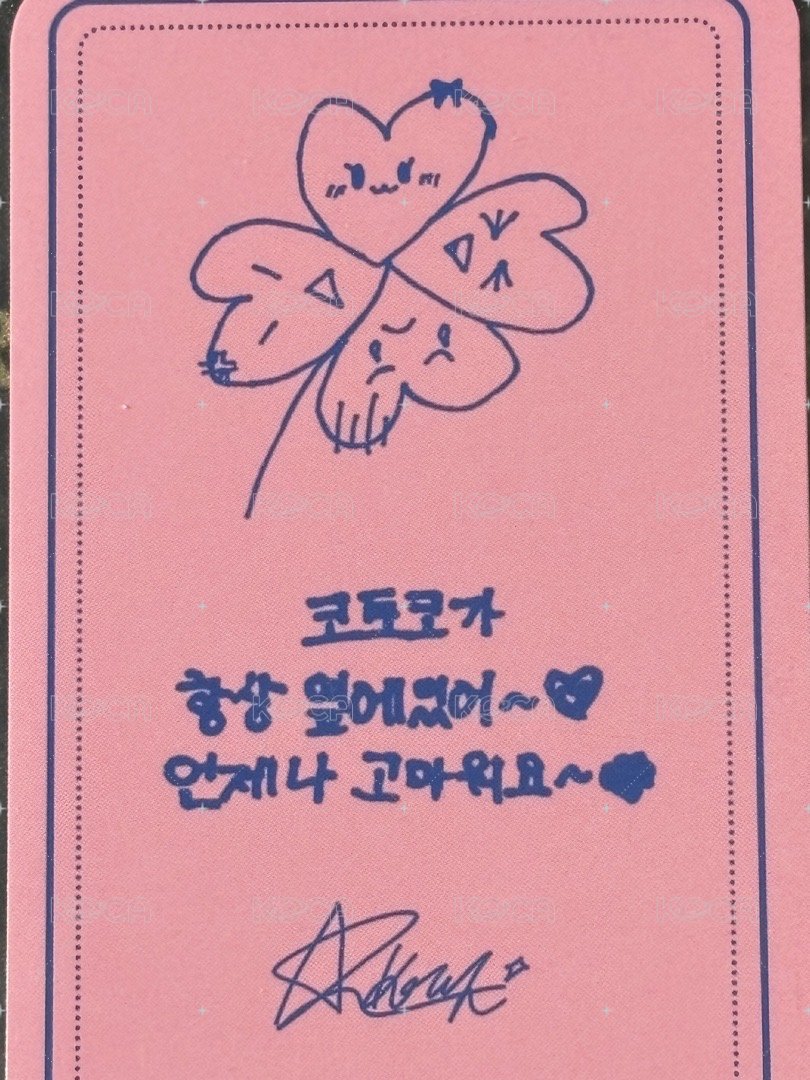 코토코가
항상 옆에있어~
언제나 고마워요~